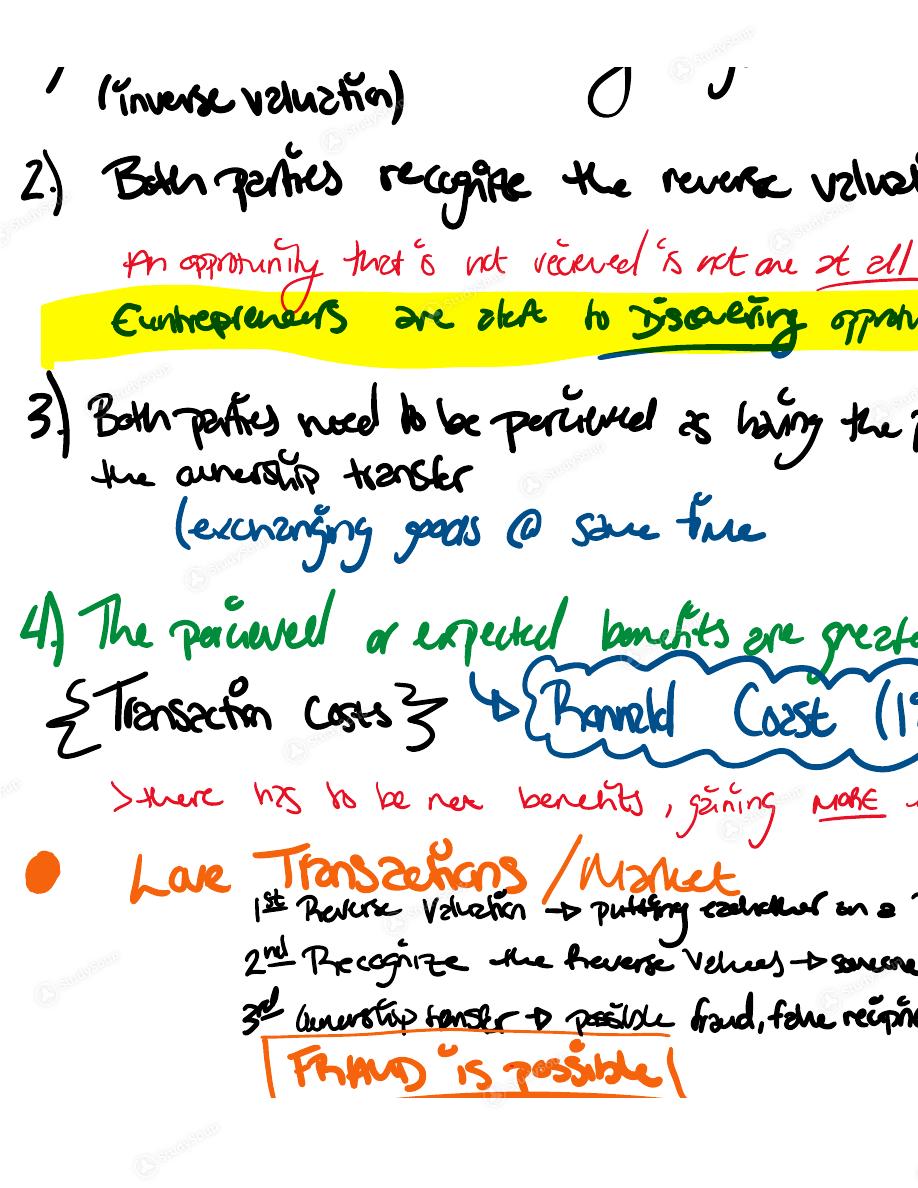 (inverse valuation)
2.) Both parties recognize the reverse valuat
An opportunity that is not recieved is not one at all
Euntrepreneurs are alert to Discovering opportu
3.) Both parties need to be percieved as having the p
the ownership transfer
(exchanging goods @ same time
4.) The percieved or expected benefits are greate
{Transaction Costs} {Ronneld Coast (19
>there has to be net benefits, gaining MORE
Love Transactions/Market
1st Reverse Valuation → putting eachother on a
2nd Recognize the Reverse Values → someone
3rd Ownership transfer → possible fraud, fake recipro
FRAUD is possible